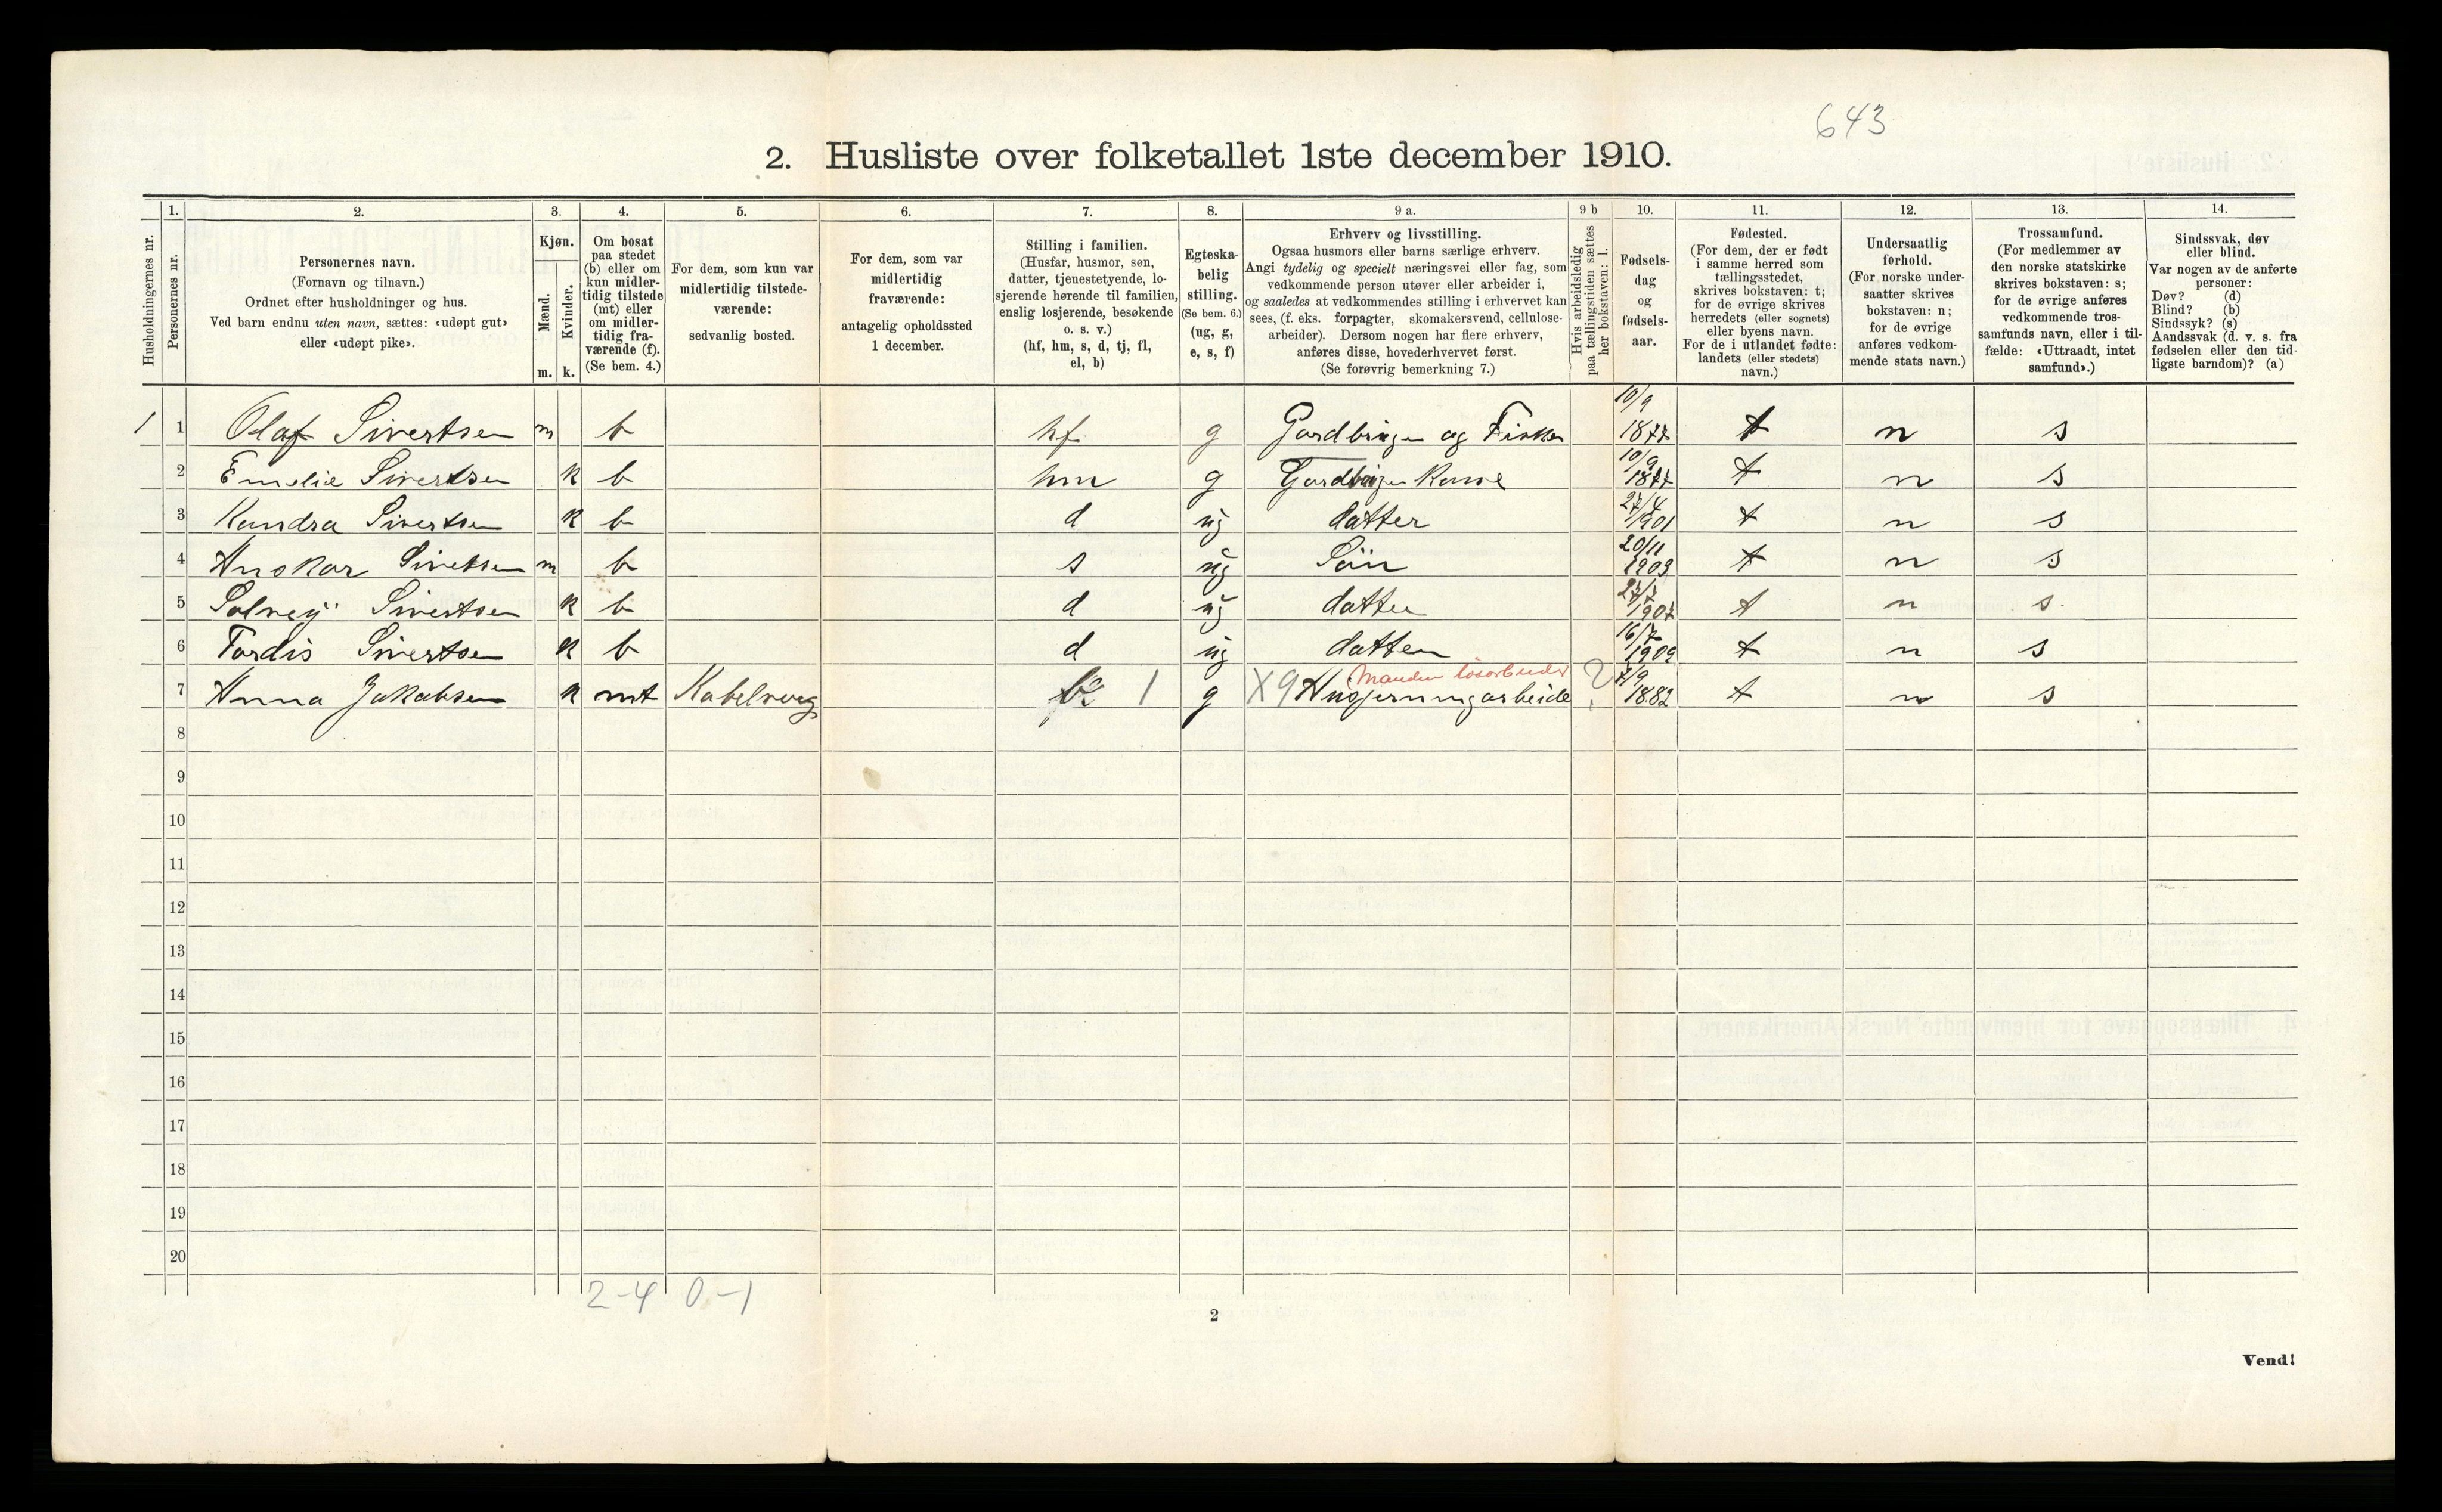 643
2. Husliste over folketallet 1ste december 1910.
Husholdningernes nr.
1.
Personernes nr.
2.
Personernes navn.
(Fornavn og tilnavn.)
Ordnet efter husholdninger og hus.
Ved barn endnu uten navn, sættes: «udøpt gut»
eller «udøpt pike».
3.
Kjøn.
Mænd.
Kvinder.
m. k.
4.
Om bosat
paa stedet
(b) eller om
kun midler-
tidig tilstede
(mt) eller
om midler-
tidig fra-
værende (f).
(Se bem. 4.)
5.
For dem, som kun var
midlertidig tilstede-
værende:
sedvanlig bosted.
6.
For dem, som var
midlertidig
fraværende:
antagelig opholdssted
1 december.
7.
Stilling i familien.
(Husfar, husmor, søn,
datter, tjenestetyende, lo-
sjerende hørende til familien,
enslig losjerende, besøkende
o. s. v.)
(hf, hm, s, d, tj, fl,
el, b)
8.
Egteska-
belig
stilling.
(Se bem. 6.)
(ug, g,
e, s, f)
9 a.
Erhverv og livsstilling.
Ogsaa husmors eller barns særlige erhverv.
Angi tydelig og specielt næringsvei eller fag, som
vedkommende person utøver eller arbeider i,
og saaledes at vedkommendes stilling i erhvervet kan
sees, (f. eks. forpagter, skomakersvend, cellulose-
arbeider). Dersom nogen har flere erhverv,
anføres disse, hovederhvervet først.
(Se forøvrig bemerkning 7.)
9 b
Hvis arbeidsledig
paa tællingstiden sættes
her bokstaven: l.
10.
Fødsels-
dag
og
fødsels-
aar.
11.
Fødested.
(For dem, der er født
i samme herred som
tællingsstedet,
skrives bokstaven: t;
for de øvrige skrives
herredets (eller sognets)
eller byens navn.
For de i utlandet fødte:
landets (eller stedets)
navn.)
12.
Undersaatlig
forhold.
(For norske under-
saatter skrives
bokstaven: n;
for de øvrige
anføres vedkom-
mende stats navn.)
13.
Trossamfund.
(For medlemmer av
den norske statskirke
skrives bokstaven: s;
for de øvrige anføres
vedkommende tros-
samfunds navn, eller i til-
fælde: «Uttraadt, intet
samfund».)
14.
Sindssvak, døv
eller blind.
Var nogen av de anførte
personer:
Døv? (d)
Blind? (b)
Sindssyk? (s)
Aandssvak (d. v. s. fra
fødselen eller den tid-
ligste barndom)? (a)
1 1 Olaf Sivertsen m b hf g Gardbruger og Fisker 10/9 1877 t n s
2 Emelie Sivertsen k b hm g Gardbruger Kone 10/9 1877 t n s
3 Kandra Sivertsen k b d ug datter 27/4 1901 t n s
4 Anskar Sivertsen m b s ug Sön 20/11 1903 t n s
5 Solveij Sivertsen k b d ug datter 27/7 1907 t n s
6 Tordis Sivertsen k b d ug datter 16/7 1909 t n s
Manden løsarbeider
7 Anna Jakobsen k mt Kabelvaag 1 g X9 Husgjerningarbeide ? 7/9 1882 t n s
8
9
10
11
12
13
14
15
16
17
18
19
20
2-4 0-1
2
Vend!